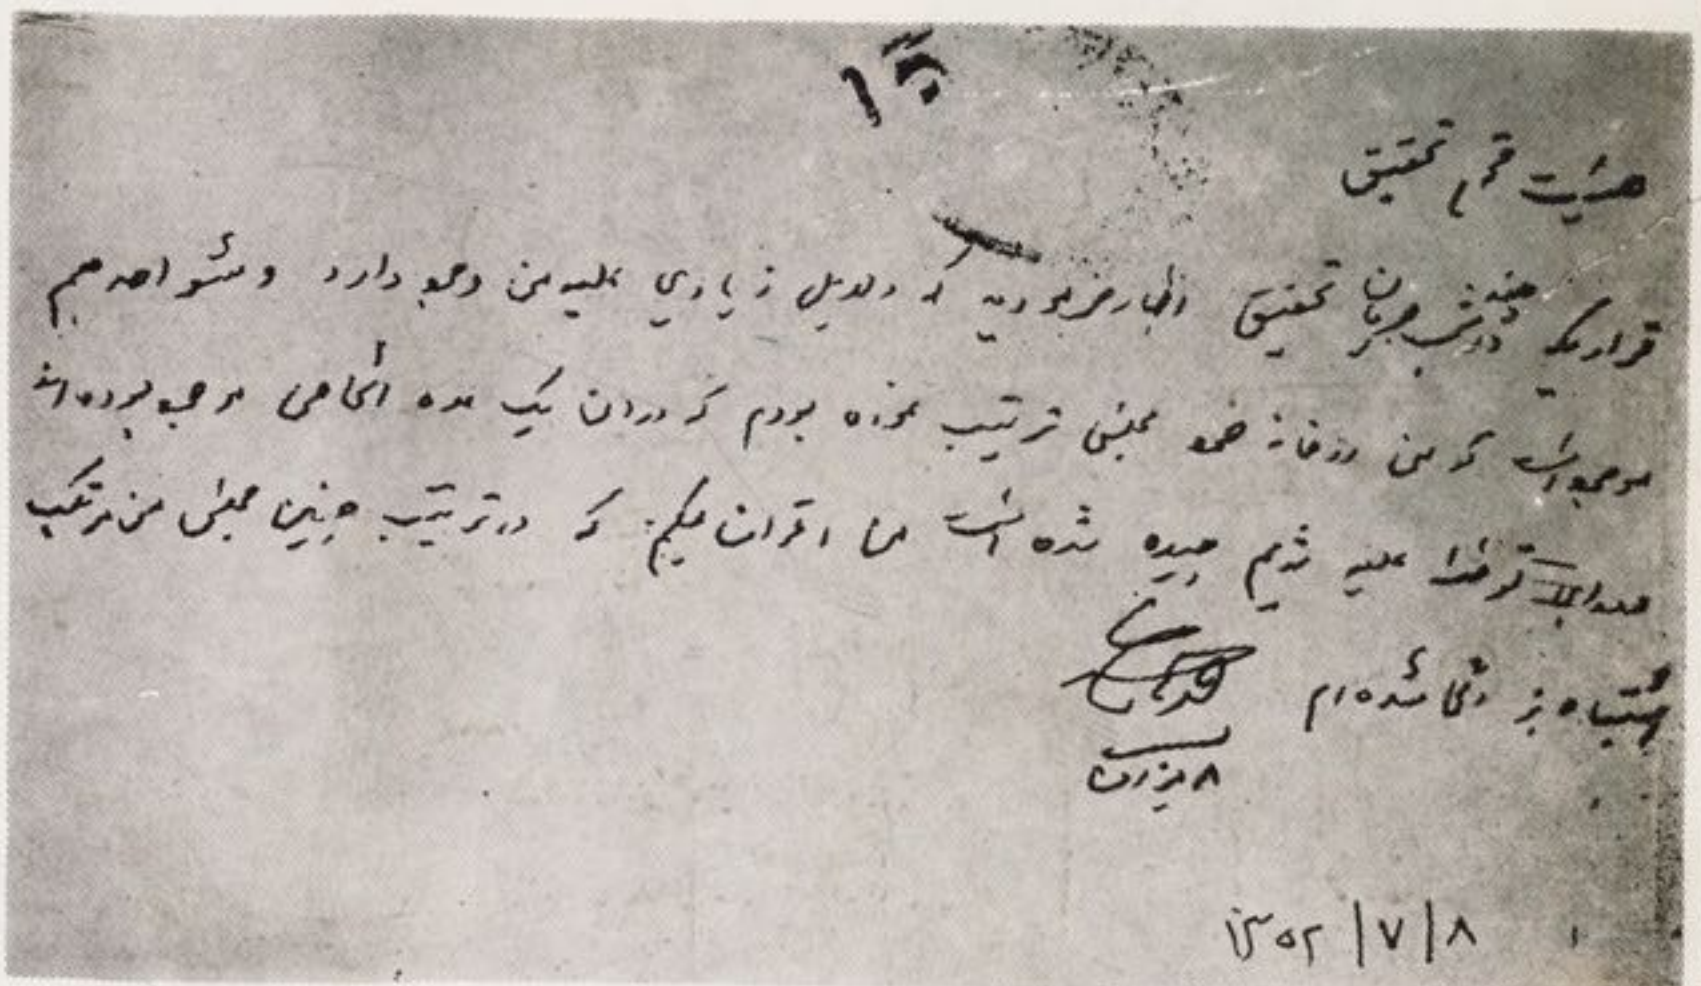 هیئت محترم تحقیق
قراریکه در چند شب جریان تحقیق اظهار فرمودید که دلایل زیادی علیه من وجود دارد و شواهد هم
موجود است که من در خانه خود مجلسی ترتیب نموده بودم که در آن یک عده اشخاص موجود بوده اند
علیه رژیم چیده شده است من اقرار میکنم که در ترتیب چنین مجلس من مرتکب
اشتباه بز شده ام
۸ میزان
۱۳۵۲/۷/۸